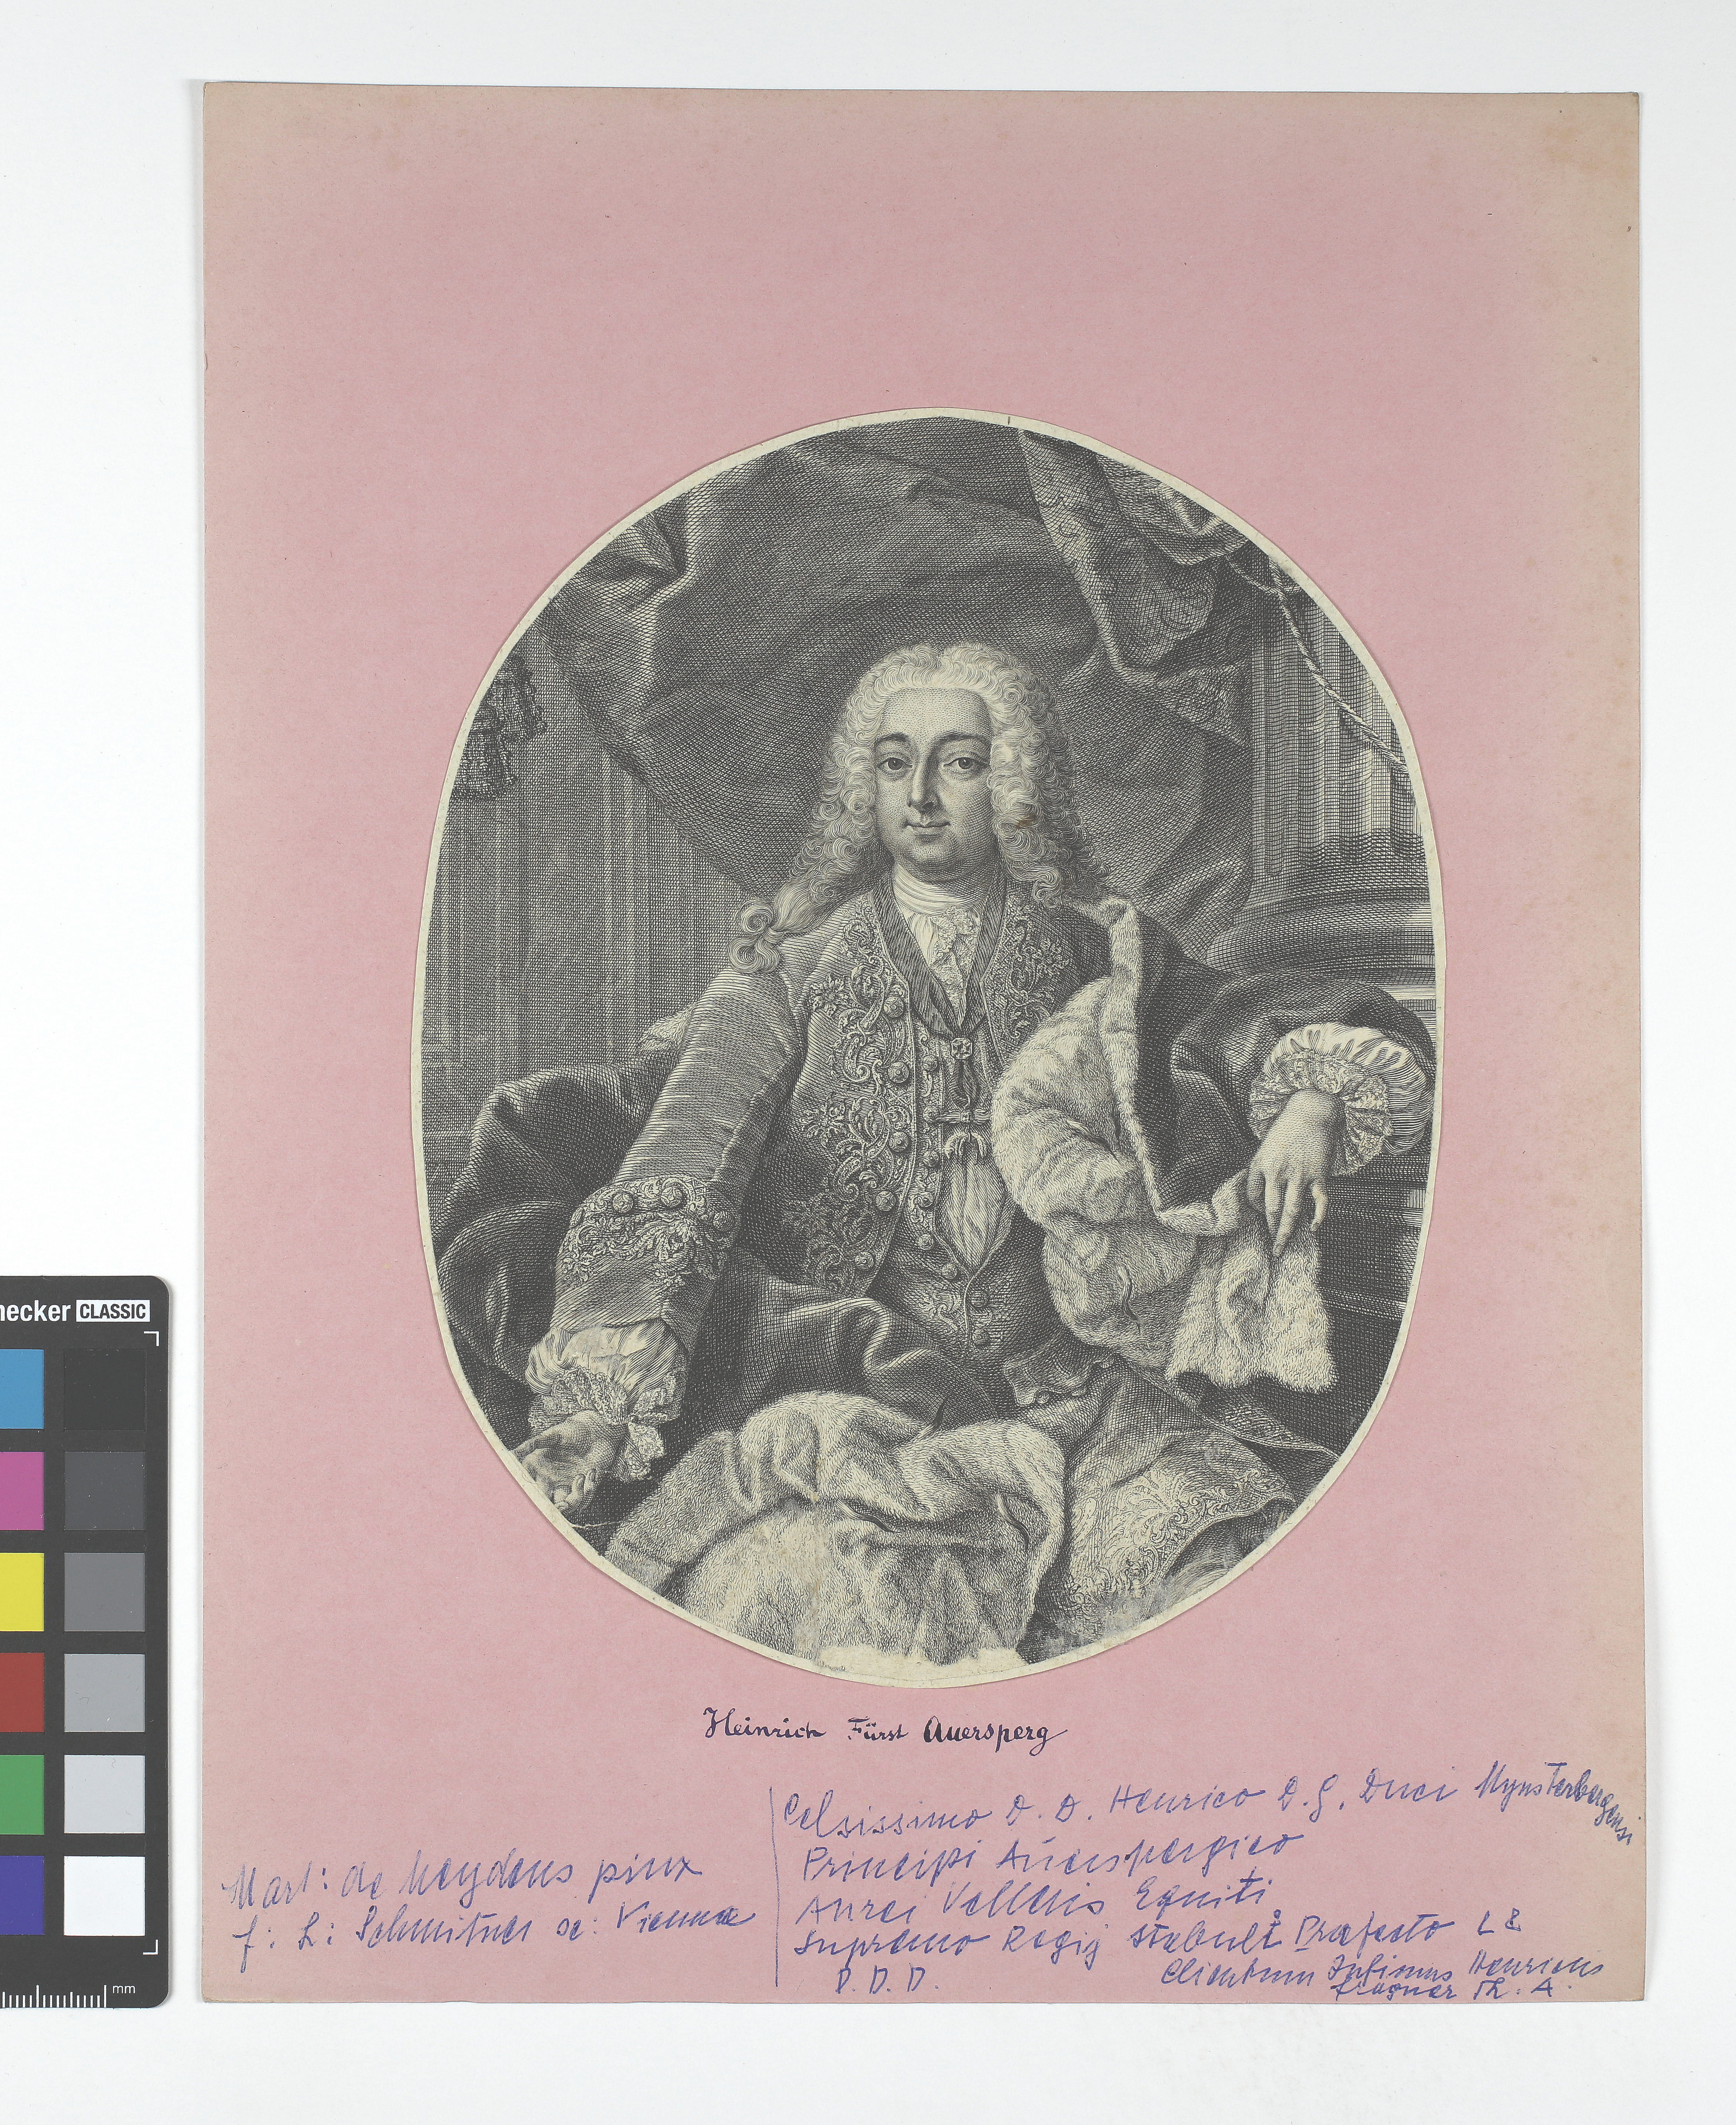 hecker CLASSIC
mm
Heinrich Fürst Auersperg
Mart: de Meydens pinx
f: L: Schmitner sc: Viennae
Celsissimo D. D. Henrico D. G. Duci Mynsterbergensi
Principi Auerspergico
Aurei Velleris Equiti
Supremo Regij Stabuli Praefecto
D. D. D.
Clientum Infimus Henricus
Fragner Th. A.